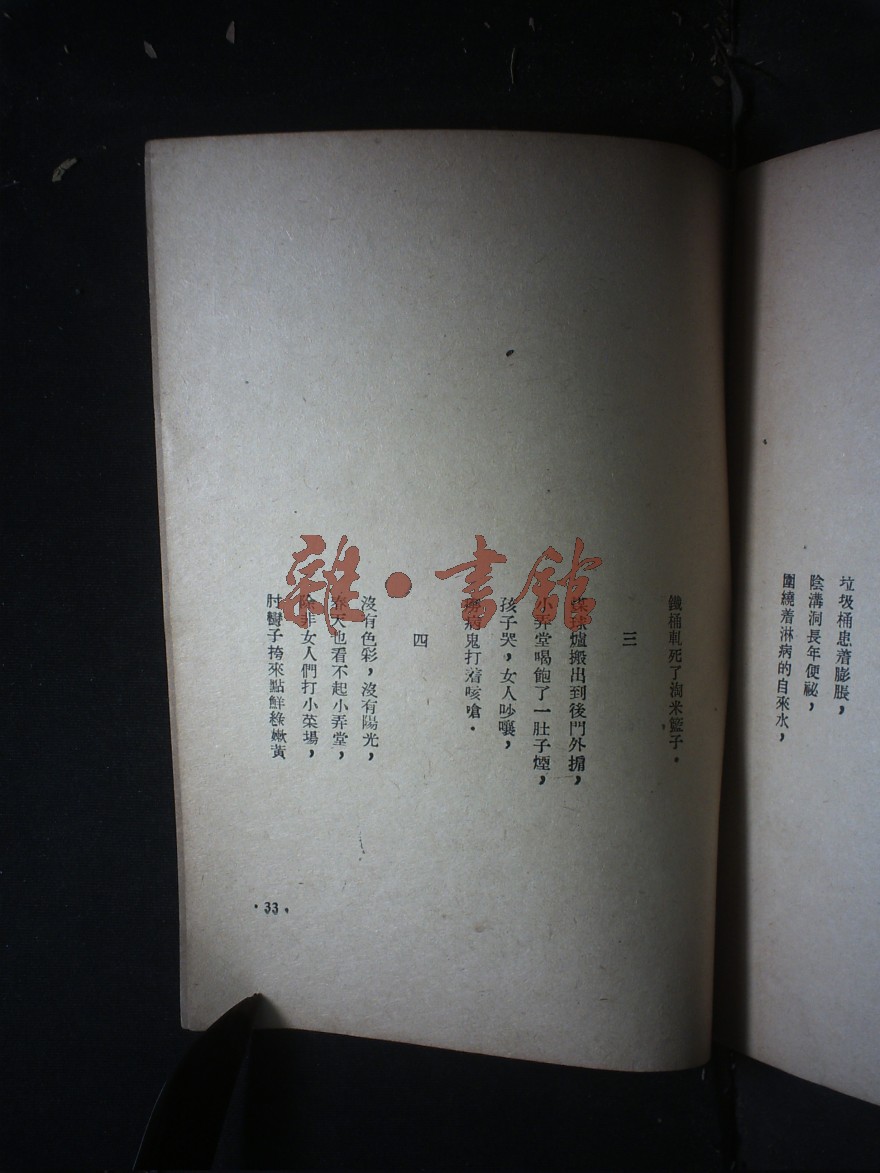 垃圾桶患着膨脹，
陰溝洞長年便祕，
圍繞着淋病的自來水，
鐵桶軋死了淘米籃子．
三
煤球爐搬出到後門外搧，
小弄堂喝飽了一肚子煙，
孩子哭，女人吵嚷，
病鬼打着咳嗆．
四
沒有色彩，沒有陽光，
春天也看不起小弄堂，
除非女人們打小菜場，
肘彎子挎來點鮮綠嫩黃
·33·
雜·書舘